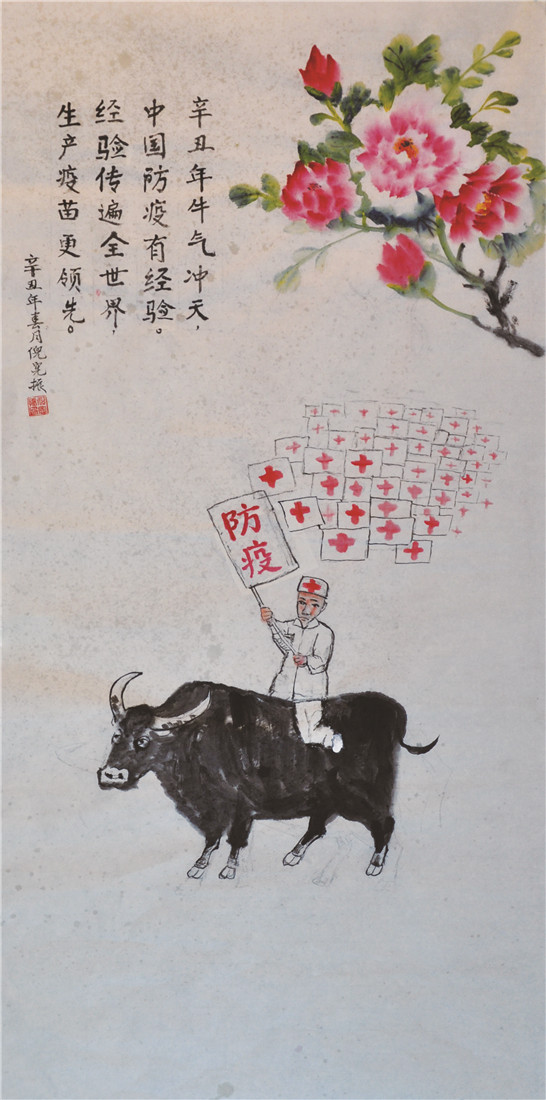 辛丑年牛气冲天，
中国防疫有经验。
经验传遍全世界，
生产疫苗更领先。
辛丑年春月倪完振
防疫